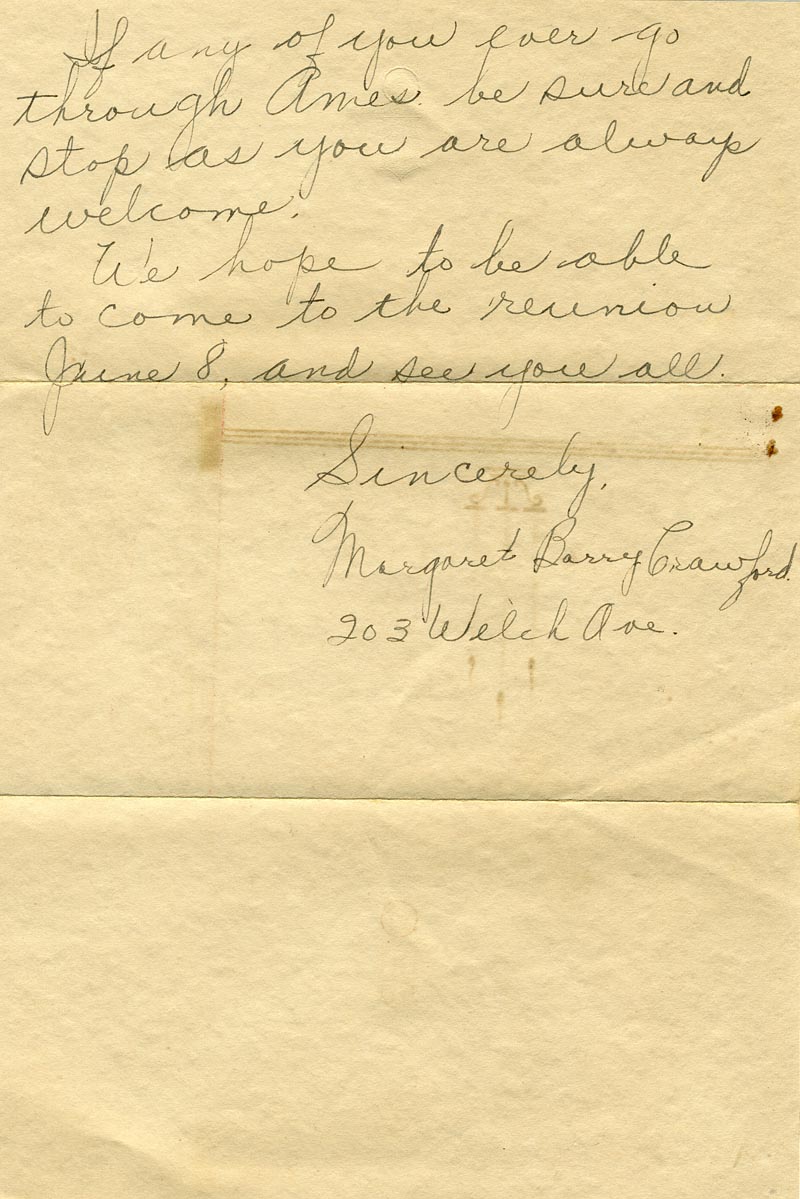 If any of you ever go
through Ames be sure and
stop as you are always
welcome.
We hope to be able
to come to the reunion
June 8, and see you all.
Sincerely,
Margaret Barry Crawford.
203 Welch Ave.